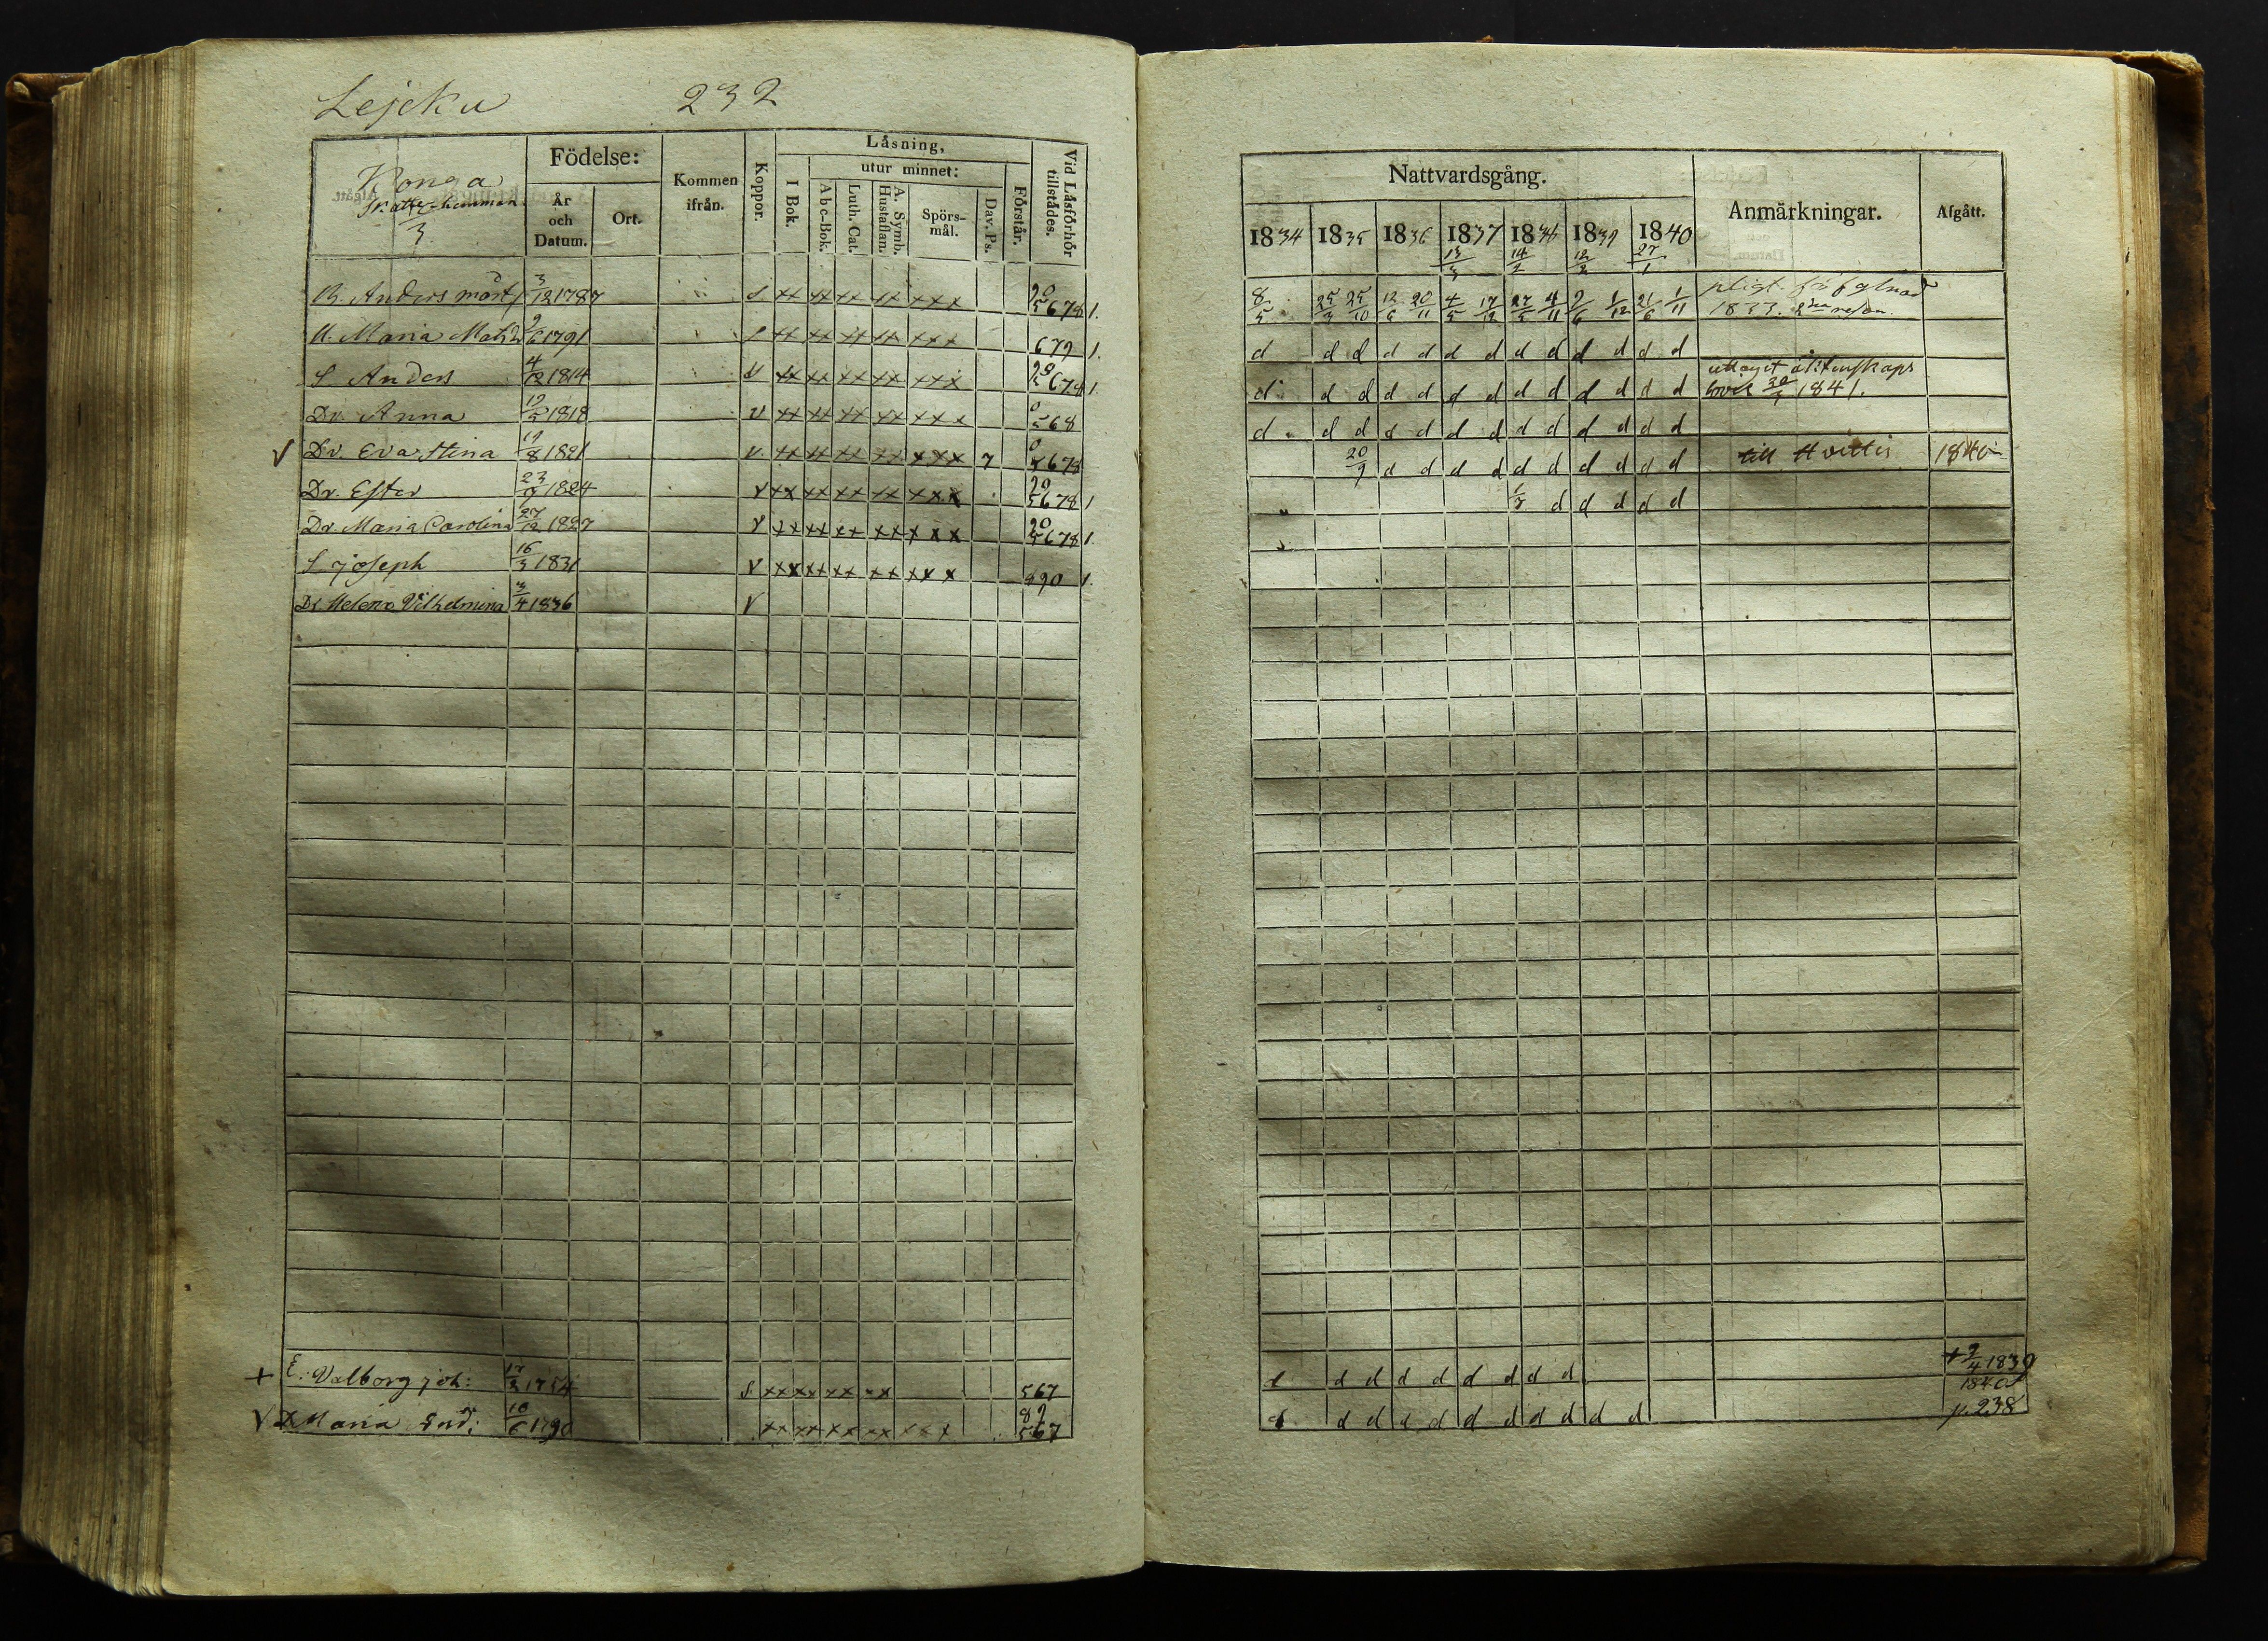 Lejeku 232
Konga
Skattehemman
3
Födelse:
År och Datum.
Ort.
Kommen ifrån.
Koppor.
Läsning,
I Bok.
utur minnet:
A b c-Bok.
Luth. Cat.
A. Symb. Hustaflan.
Spörs-mål.
Dav. Ps.
Förstår.
Vid Läsförhör tillstädes.
B. Anders mårt 3/12 1787 s xx xx xx xx xxx 20 5678 1.
U. Maria Mats 9/6 1791 s xx xx xx xx xxx 679 1.
S Anders 4/12 1814 v xx xx xx xx xxx 1
Dr. Anna 1818 v xx xx xx xx xxx 0 568
√ Dr. Eva Stina 19/8 1821 v. xx xx xx xx xxx 7 0 5678
Dr. Ester 23/9 1824 v xx xx xx xx xxx 20 5678 1
Dr. Maria Carolina 27/12 1827 v xx xx xx xx xxx 20 5678 1.
S joseph 16/3 1831 v xx xx xx xx xxx 890 1.
Dr Helena Vilhelmina 3/4 1836 v
+ E: Valborg joh: 17/2 1754 s. xx xx xx xx 567
√ D Maria And: 18/6 1790 xx xx xx xx xxx 89 567
Nattvardsgång.
Anmärkningar.
Afgått.
1834 1835 1836 1837 1838 1839 1840
13/3 14/2 12/2 27/1
8/5 25/3 25/10 12/6 20/11 4/5 17/12 27/5 4/11 9/6 1/12 21/6 1/11 pligt. för
1833. 2dra resan.
d d d d d d d d d d d d d
d d d d d d d d d d d d d uttagit äktenskaps
1841.
d d d d d d d d d d d d d
20/9 d d d d d d d d d d till Hvittis 1840
1/7 d d d d d
d d d d d d d d d + 9/4 1839
d d d d d d d d d d d 1840
p. 238